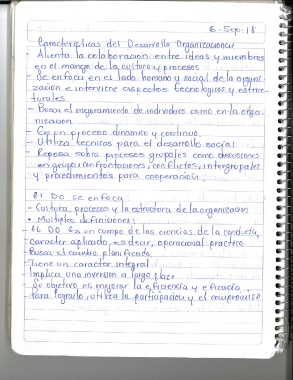 6-Sep-18
Caracteristicas del Desarrollo Organizacional
- Alienta la colaboracion entre ideas y miembros
en el manejo de la cultura y procesos
- Se enfoca en el lado humano y social de la organi-
zación e interviene aspectos tecnologicos y estruc-
turales
- Busca el mejoramiento de individuos como en la orga-
nizacion
- Es un proceso dinamico y continuo.
- Utiliza tecnicas para el desarrollo social
- Reposa sobre procesos grupales como discusiones
en grupo, confrontaciones, conflictos, intergrupales
y procedimientos para cooperación.
El DO se enfoca:
- Cultura, procesos y la estructura de la organizacion
• Multiples definiciones:
- EL DO es un campo de las ciencias de la conducta,
caracter aplicado, es decir, operacional practico
- Busca el cambio planificado.
- Tiene un caracter integral
- Implica una inversion a largo plazo
- Su objetivo es mejorar la eficiencia y eficacia
- Para lograrlo utiliza la participacion y el compromiso